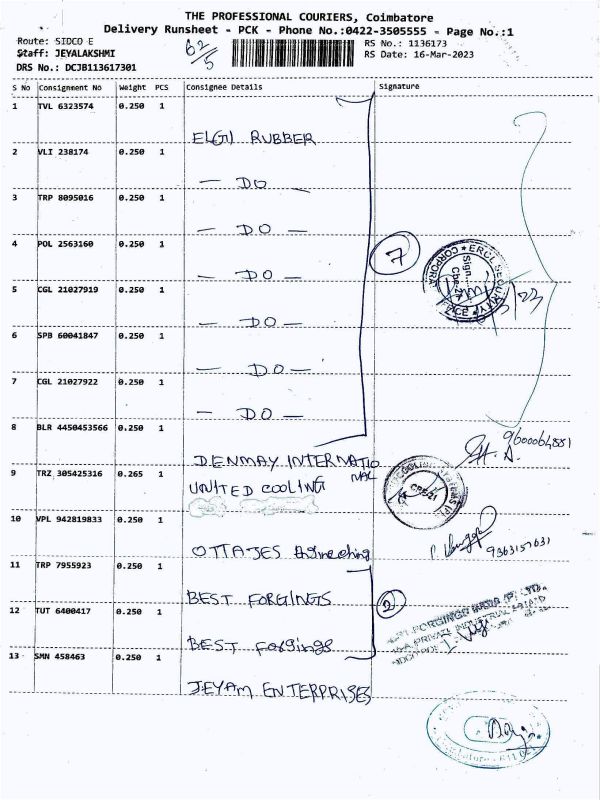 THE PROFESSIONAL COURIERS, Coimbatore
Delivery Runsheet - PCK - Phone No.:0422-3505555 - Page No.:1
Route: SIDCO E
62/5
RS No.: 1136173
Staff: JEYALAKSHMI
RS Date: 16-Mar-2023
DRS No.: DCJB113617301
S No Consignment No Weight PCS Consignee Details Signature
1 TVL 6323574 0.250 1
ELGI RUBBER
2 VLI 238174 0.250 1
— DO —
3 TRP 8095016 0.250 1
— DO —
4 POL 2563160 0.250 1
— DO —
7
5 CGL 21027919 0.250 1
— DO —
6 SPB 60041847 0.250 1
— DO —
7 CGL 21027922 0.250 1
— DO —
8 BLR 4450453566 0.250 1
DENMAY INTERNATIONAL
9 TRZ 305425316 0.265 1
UNITED COOLING
10 VPL 942819833 0.250 1
OTTAJES Engineering
9363157631
11 TRP 7955923 0.250 1
BEST FORGINGS
2
12 TUT 6400417 0.250 1
BEST Forgings
13 SMN 458463 0.250 1
JEYAM ENTERPRISES